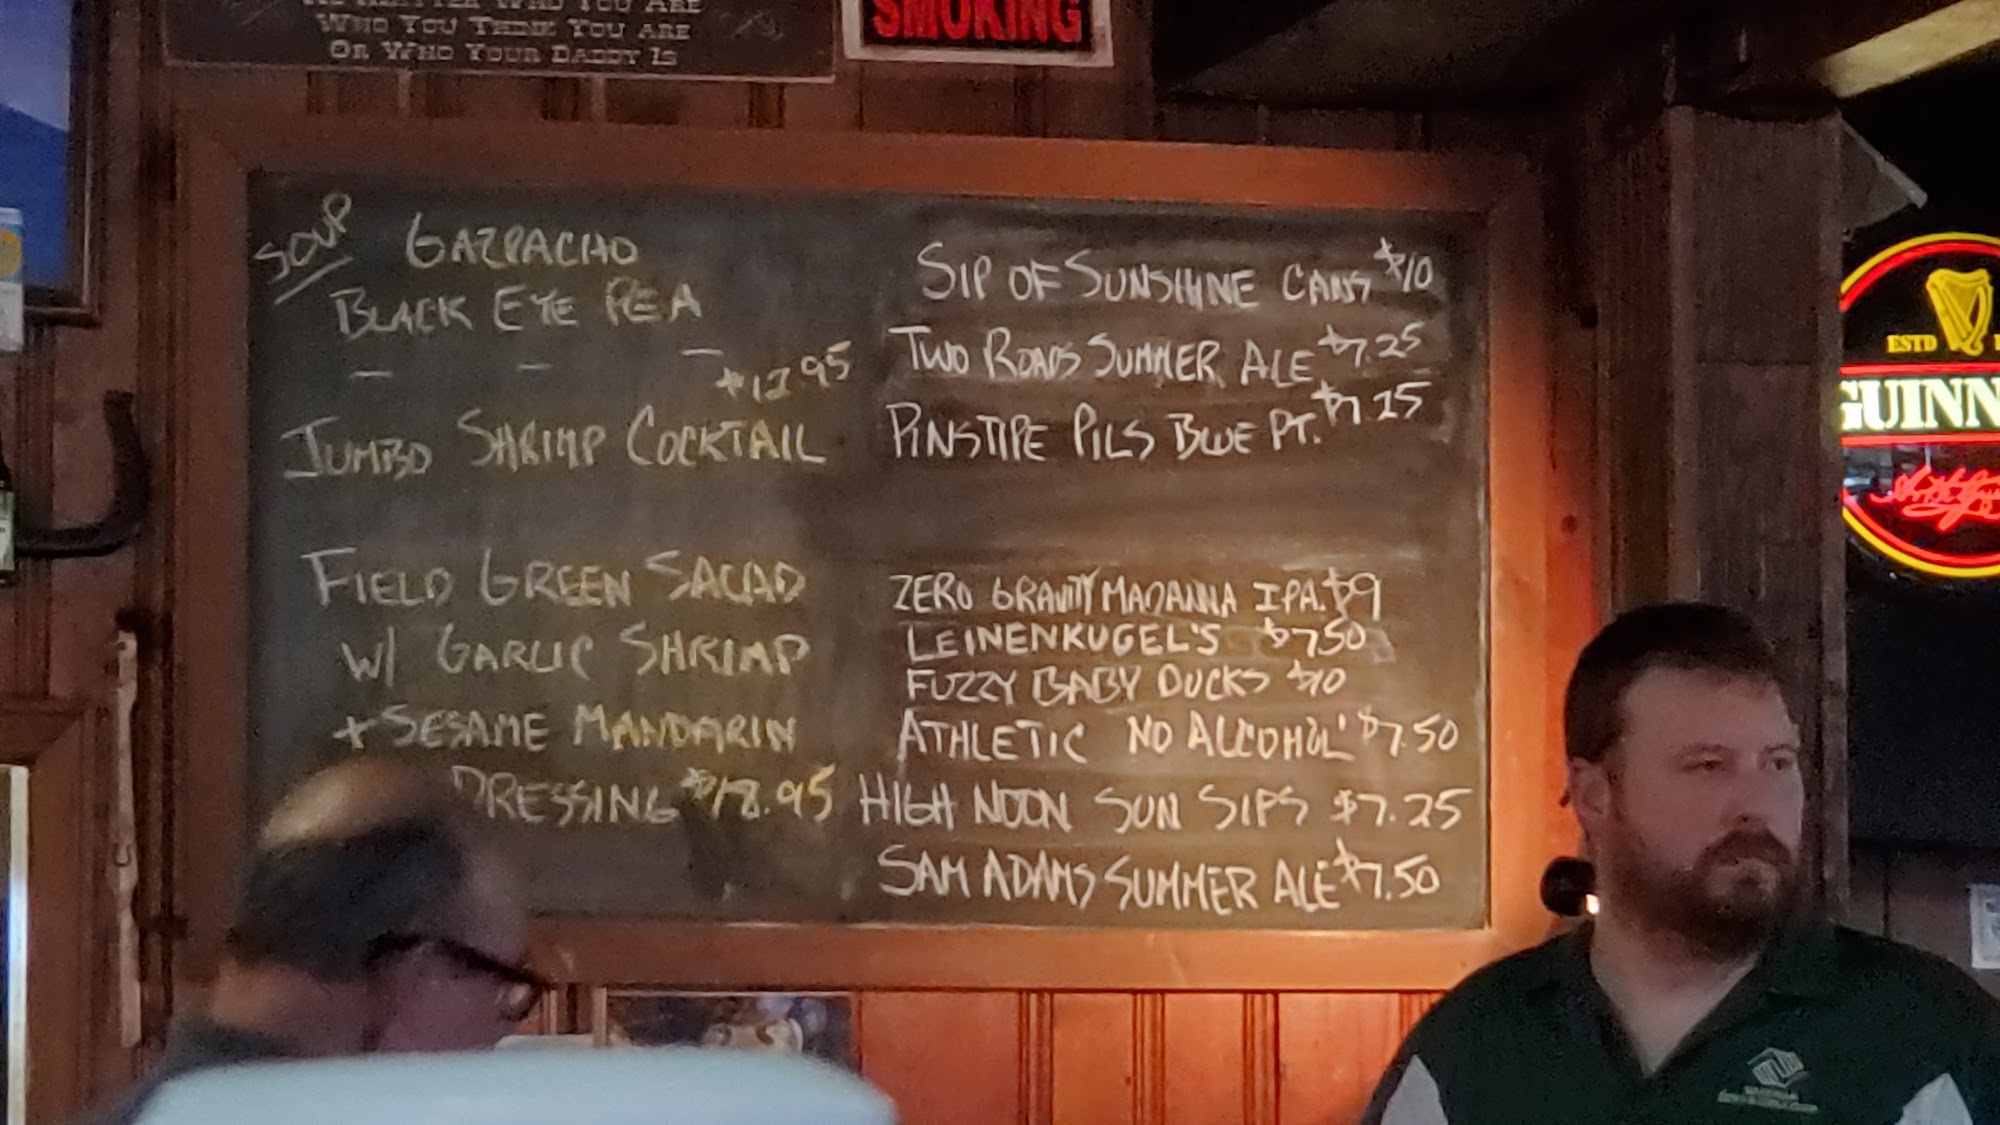 WHO YOU THINK YOU ARE
OR WHO YOUR DADDY IS
SMOKING
SOUP
GAZPACHO
BLACK EYE PEA
- - -
$12.95
JUMBO SHRIMP COCKTAIL
FIELD GREEN SALAD
W/ GARLIC SHRIMP
+ SESAME MANDARIN
DRESSING $18.95
SIP OF SUNSHINE CANS $10
TWO ROADS SUMMER ALE $7.25
PINSTIPE PILS BLUE PT. $7.25
ZERO GRAVITY MADANNA IPA. $9
LEINENKUGEL'S $7.50
FUZZY BABY DUCKS $10
ATHLETIC NO ALCOHOL $7.50
HIGH NOON SUN SIPS $7.25
SAM ADAMS SUMMER ALE $7.50
ESTD
GUINN